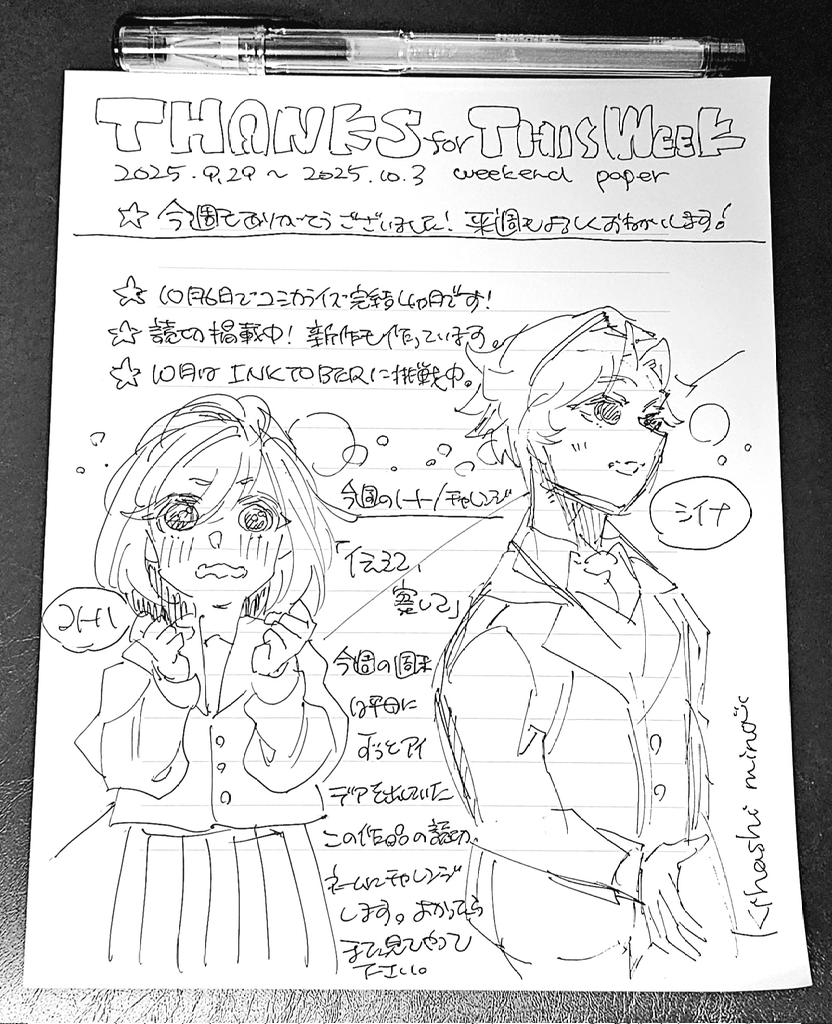 THANKS for THIS WEEK
2025.9.29 ~ 2025.10.3 weekend paper
☆ 今週もありがとうございました! 来週もよろしくおねがいします!
☆ 10月6日でコミカライズ完結4ヵ月です!
☆ 読切掲載中! 新作も作っています。
☆ 10月は INKTOBERに挑戦中。
今週の チャレンジ
「伝えて、
して」
シイナ
今週の週末
は平日に
ずっとアイ
デアを出していた
この作品の読切
ネームにチャレンジ
します。よかったら
また見てやって
下さい。
Kihashi mino